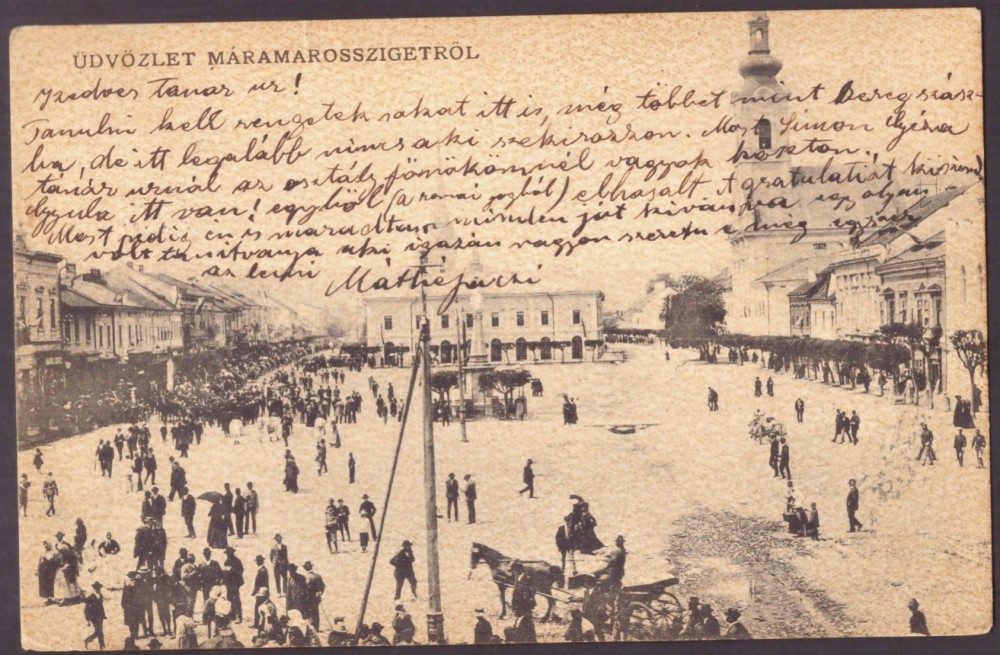 ÜDVÖZLET MÁRAMAROSSZIGETRŐL
Kedves tanár ur!
Tanulni kell rengeteg sokat itt is, még többet mint Beregszász-
ba, de itt legalább nincs aki szekirozzon. Most Simon Géza
tánár urnál az osztály főnökömnél vagyok koszton.
Gyula itt van! egyből (a római jogból) elhasalt. A gratulatiót köszönöm
Most pedig én is maradtam minden jót kivánva egy olyan
volt tanitványa aki igazán nagyon szeretne még egyszer
az lenni
Máthé